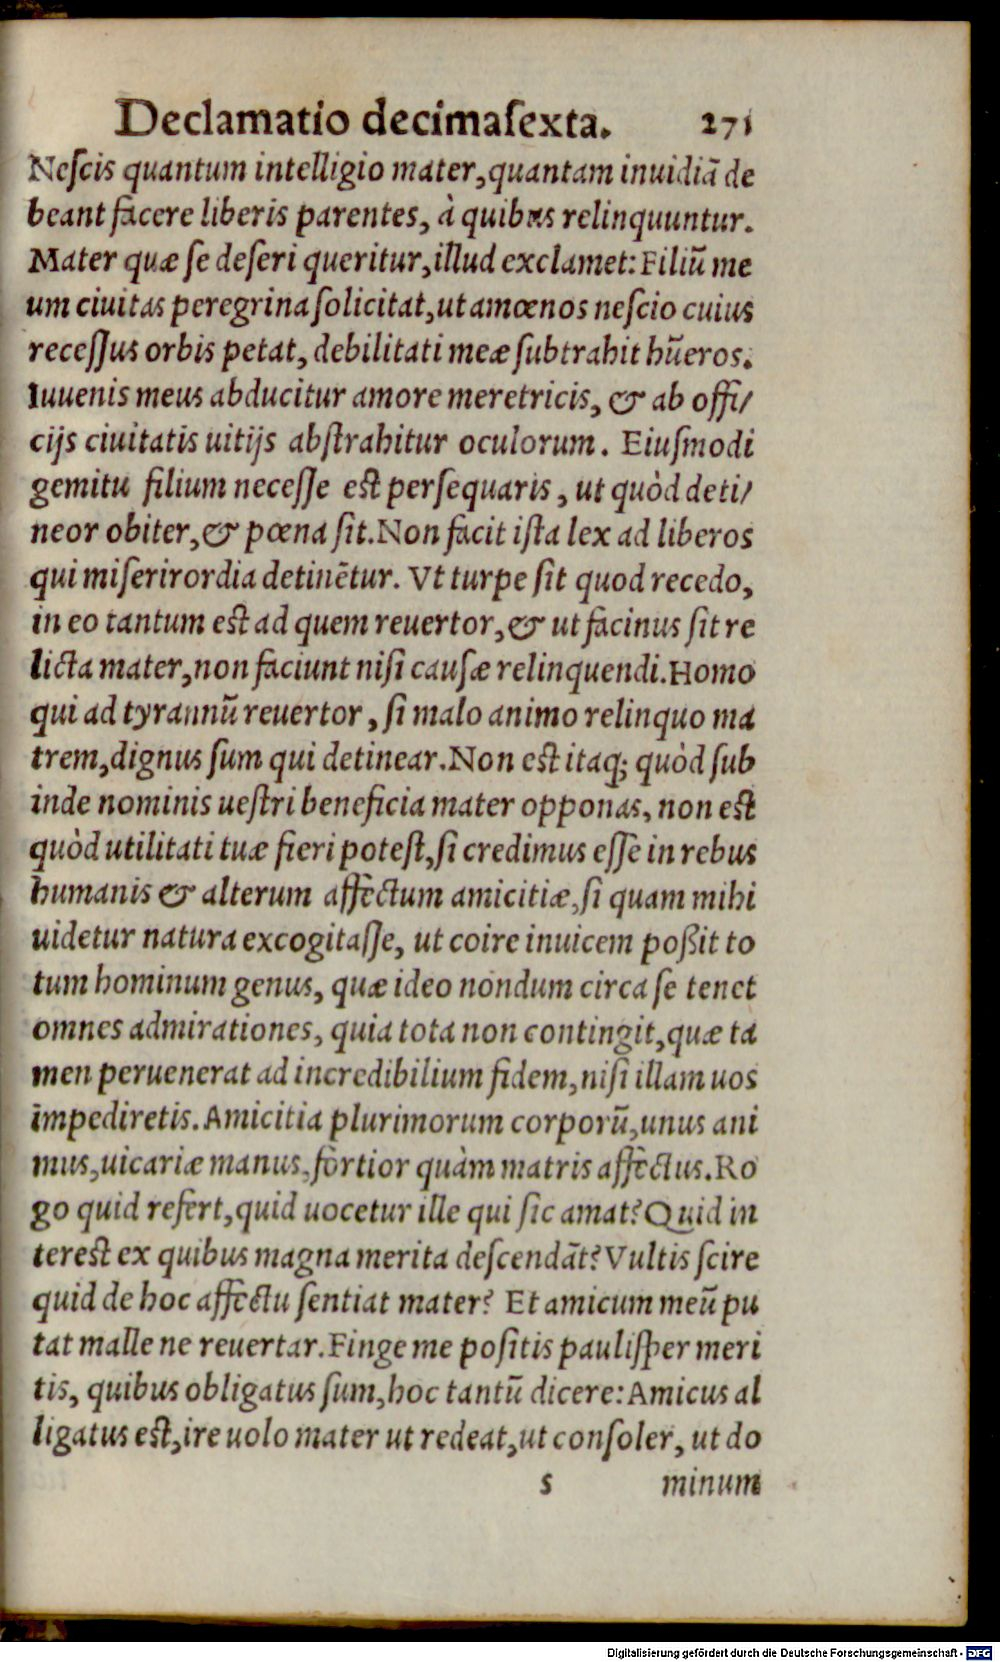 Declamatio decimasexta. 271
Nescis quantum intelligio mater, quantam inuidiã de
beant facere liberis parentes, à quibus relinquuntur.
Mater quæ se deseri queritur, illud exclamet: Filiũ me
um ciuitas peregrina solicitat, ut amœnos nescio cuius
recessus orbis petat, debilitati meæ subtrahit hũeros.
Iuuenis meus abducitur amore meretricis, & ab offi/
cijs ciuitatis uitijs abstrahitur oculorum. Eiusmodi
gemitu filium necesse est persequaris, ut quòd deti/
neor obiter, & pœna sit. Non facit ista lex ad liberos
qui miserirordia detinẽtur. Vt turpe sit quod recedo,
in eo tantum est ad quem reuertor, & ut facinus sit re
licta mater, non faciunt nisi causæ relinquendi. Homo
qui ad tyrannũ reuertor, si malo animo relinquo ma
trem, dignus sum qui detinear. Non est itaq; quòd sub
inde nominis uestri beneficia mater opponas, non est
quòd utilitati tuæ fieri potest, si credimus esse in rebus
humanis & alterum affectum amicitiæ, si quam mihi
uidetur natura excogitasse, ut coire inuicem poßit to
tum hominum genus, quæ ideo nondum circa se tenet
omnes admirationes, quia tota non contingit, quæ ta
men peruenerat ad incredibilium fidem, nisi illam uos
impediretis. Amicitia plurimorum corporũ, unus ani
mus, uicariæ manus, fortior quàm matris affectus. Ro
go quid refert, quid uocetur ille qui sic amat? Quid in
terest ex quibus magna merita descendãt? Vultis scire
quid de hoc affectu sentiat mater? Et amicum meũ pu
tat malle ne reuertar. Finge me positis paulisper meri
tis, quibus obligatus sum, hoc tantũ dicere: Amicus al
ligatus est, ire uolo mater ut redeat, ut consoler, ut do
s minum
Digitalisierung gefördert durch die Deutsche Forschungsgemeinschaft - DFG